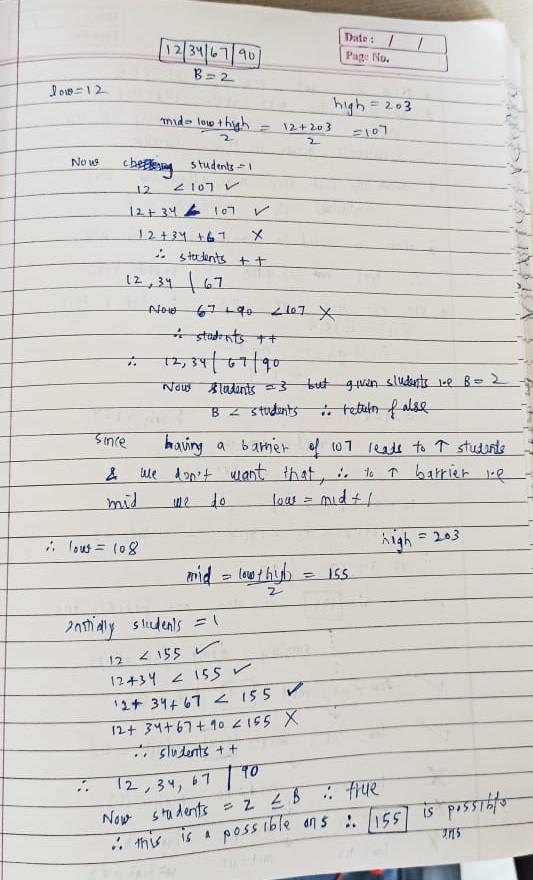 Date: / /
Page No.
12|34|67|90
B = 2
low=12
high = 203
mid = low+high/2 = 12+203/2 = 107
Now checking students=1
12 < 107 ✓
12+34 < 107 ✓
12+34+67 X
∴ students ++
12,34 | 67
Now 67+90 <107 X
∴ students ++
∴ 12,34 | 67 | 90
Now students = 3 but given students i.e B = 2
B < students ∴ return false
Since having a barrier of 107 leads to ↑ students
& we don't want that, ∴ to ↑ barrier i.e
mid we do low = mid+1
∴ low = 108
high = 203
mid = low+high/2 = 155
Initially students = 1
12 < 155 ✓
12+34 < 155 ✓
12+ 34+67 < 155 ✓
12+ 34+67+90 <155 X
∴ students ++
∴ 12, 34, 67 | 90
Now students = 2 ≤ B ∴ true
∴ this is a possible ans ∴ 155 is possible
ans